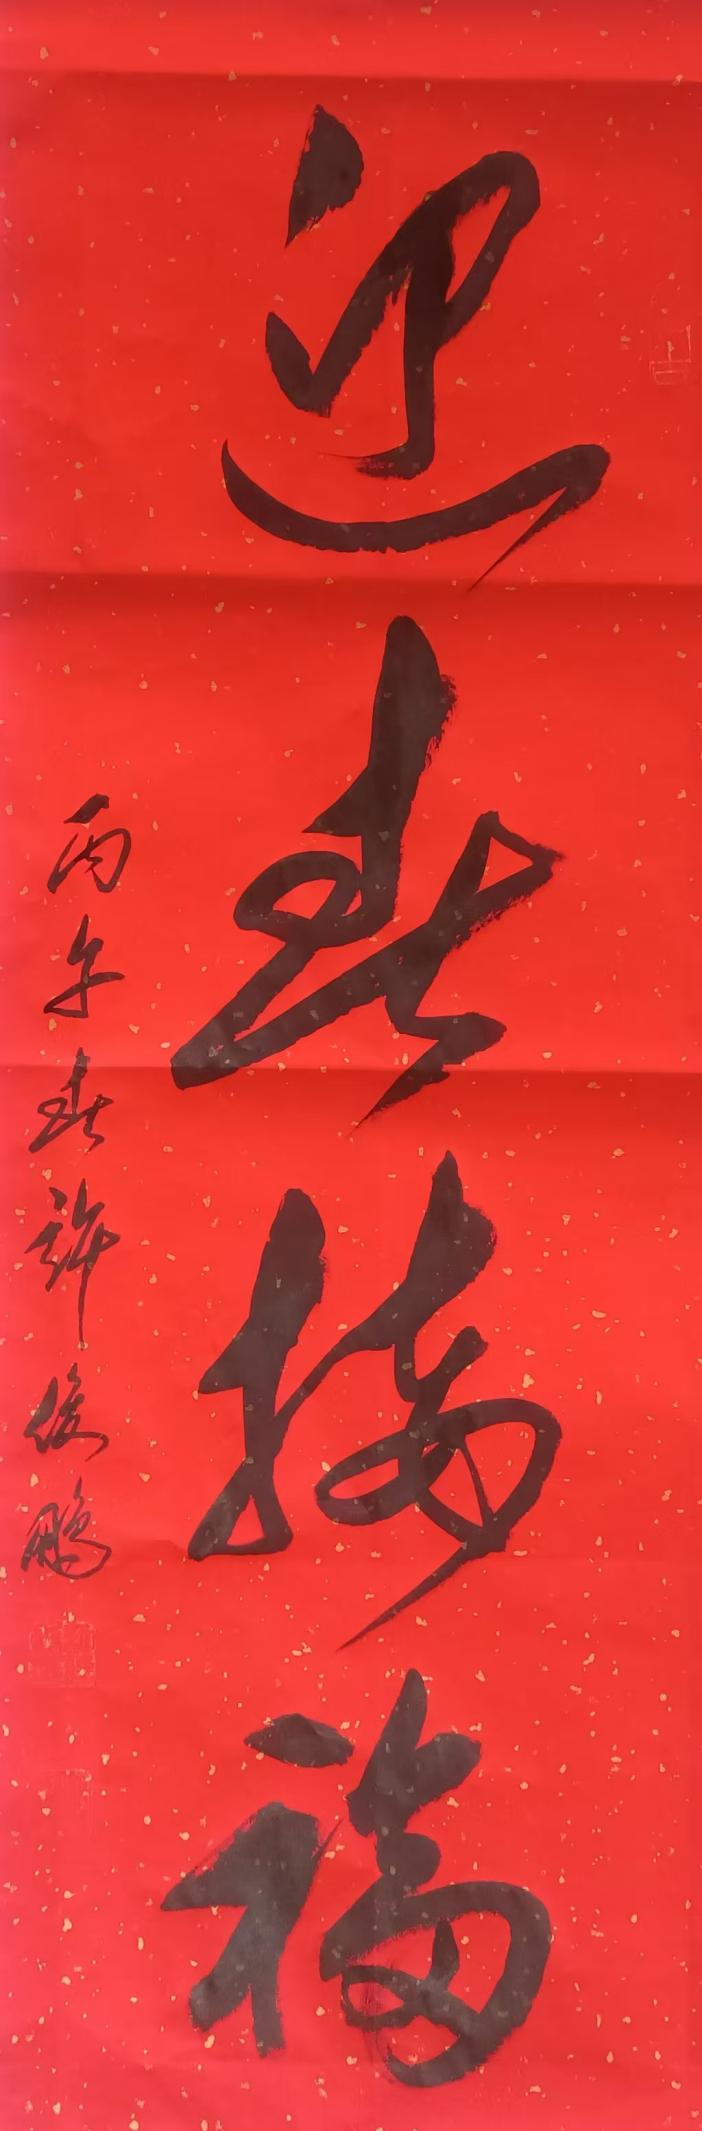 迎春接福
丙午春许俊鹏